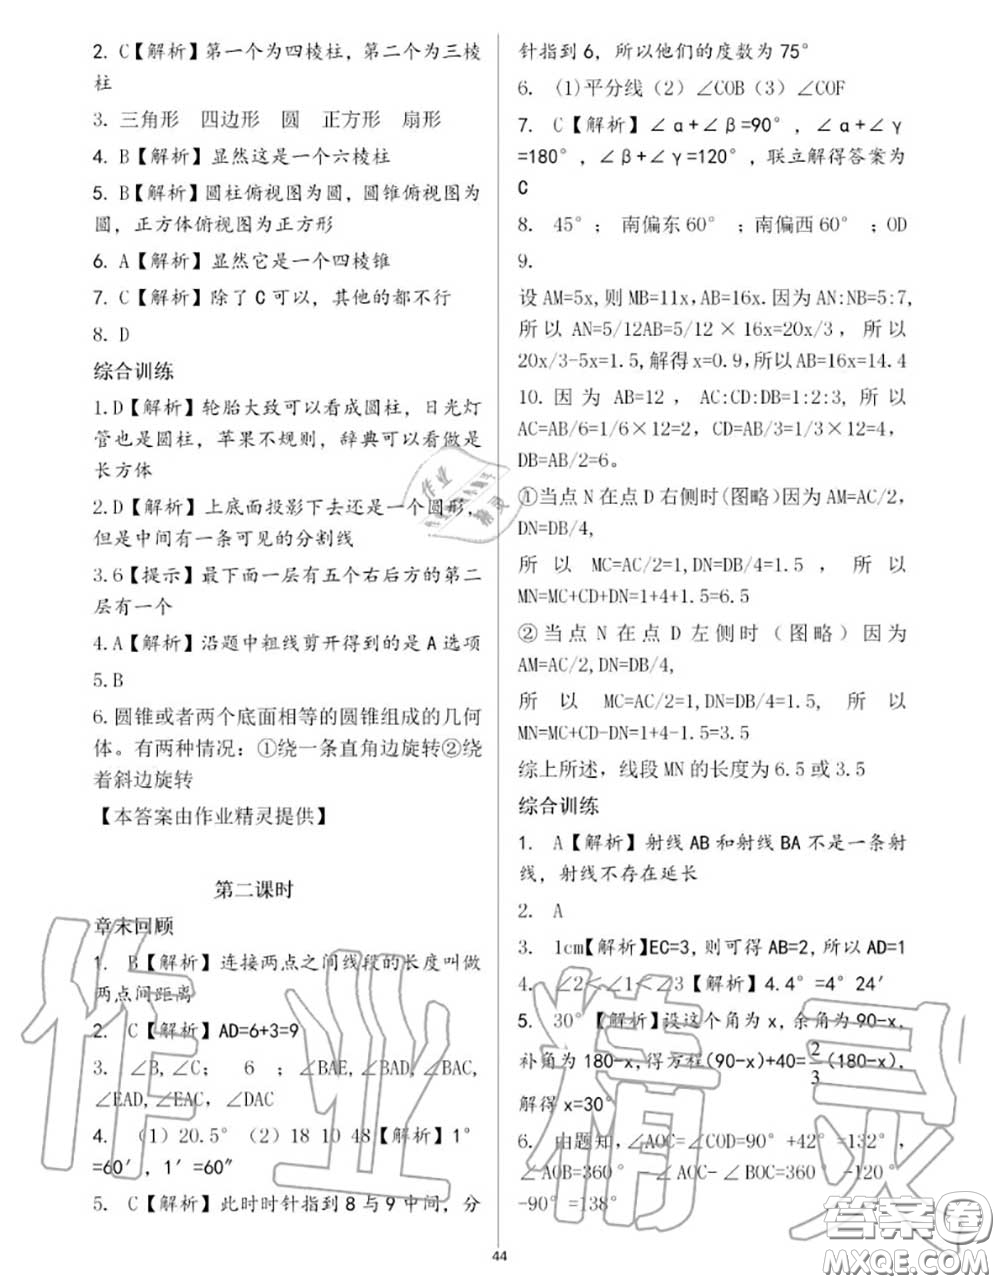 2. C【解析】第一个为四棱柱，第二个为三棱
柱
3. 三角形 四边形 圆 正方形 扇形
4. B【解析】显然这是一个六棱柱
5. B【解析】圆柱俯视图为圆，圆锥俯视图为
圆，正方体俯视图为正方形
6. A【解析】显然它是一个四棱锥
7. C【解析】除了 C 可以，其他的都不行
8. D
综合训练
1.D【解析】轮胎大致可以看成圆柱，日光灯
管也是圆柱，苹果不规则，辞典可以看做是
长方体
2.D【解析】上底面投影下去还是一个圆形，
但是中间有一条可见的分割线
3.6【提示】最下面一层有五个右后方的第二
层有一个
4.A【解析】沿题中粗线剪开得到的是 A 选项
5.B
6.圆锥或者两个底面相等的圆锥组成的几何
体。有两种情况：①绕一条直角边旋转②绕
着斜边旋转
【本答案由作业精灵提供】
第二课时
章末回顾
1. B【解析】连接两点之间线段的长度叫做
两点间距离
2. C【解析】AD=6+3=9
3. ∠B,∠C; 6 ;∠BAE,∠BAD,∠BAC,
∠EAD,∠EAC, ∠DAC
4. （1）20.5°（2）18 10 48【解析】1°
=60′, 1′=60″
5. C【解析】此时时针指到 8 与 9 中间，分
针指到 6，所以他们的度数为 75°
6. (1)平分线（2）∠COB（3）∠COF
7. C【解析】∠α+∠β=90°，∠α+∠γ
=180°，∠β+∠γ=120°，联立解得答案为
C
8. 45°； 南偏东 60° ；南偏西 60°；OD
9.
设 AM=5x,则 MB=11x,AB=16x.因为 AN:NB=5:7,
所以 AN=5/12AB=5/12×16x=20x/3，所以
20x/3-5x=1.5,解得 x=0.9,所以 AB=16x=14.4
10. 因为 AB=12，AC:CD:DB=1:2:3, 所以
AC=AB/6=1/6×12=2，CD=AB/3=1/3×12=4，
DB=AB/2=6。
①当点 N 在点 D 右侧时(图略)因为 AM=AC/2，
DN=DB/4,
所以 MC=AC/2=1,DN=DB/4=1.5，所以
MN=MC+CD+DN=1+4+1.5=6.5
②当点 N 在点 D 左侧时（图略）因为
AM=AC/2,DN=DB/4,
所以 MC=AC/2=1,DN=DB/4=1.5, 所以
MN=MC+CD-DN=1+4-1.5=3.5
综上所述，线段 MN 的长度为 6.5 或 3.5
综合训练
1. A【解析】射线 AB 和射线 BA 不是一条射
线，射线不存在延长
2. A
3. 1cm【解析】EC=3,则可得 AB=2,所以 AD=1
4. ∠2＜∠1＜∠3【解析】4.4°=4°24′
5. 30°【解析】设这个角为 x,余角为 90-x,
补角为 180-x,得方程(90-x)+40=2/3(180-x),
解得 x=30°
6. 由题知,∠AOC=∠COD=90°+42°=132°,
∠AOB=360°-∠AOC-∠BOC=360°-132°
-90°=138°
44
作业精灵
作业
精灵
答案圈
MXQE.COM